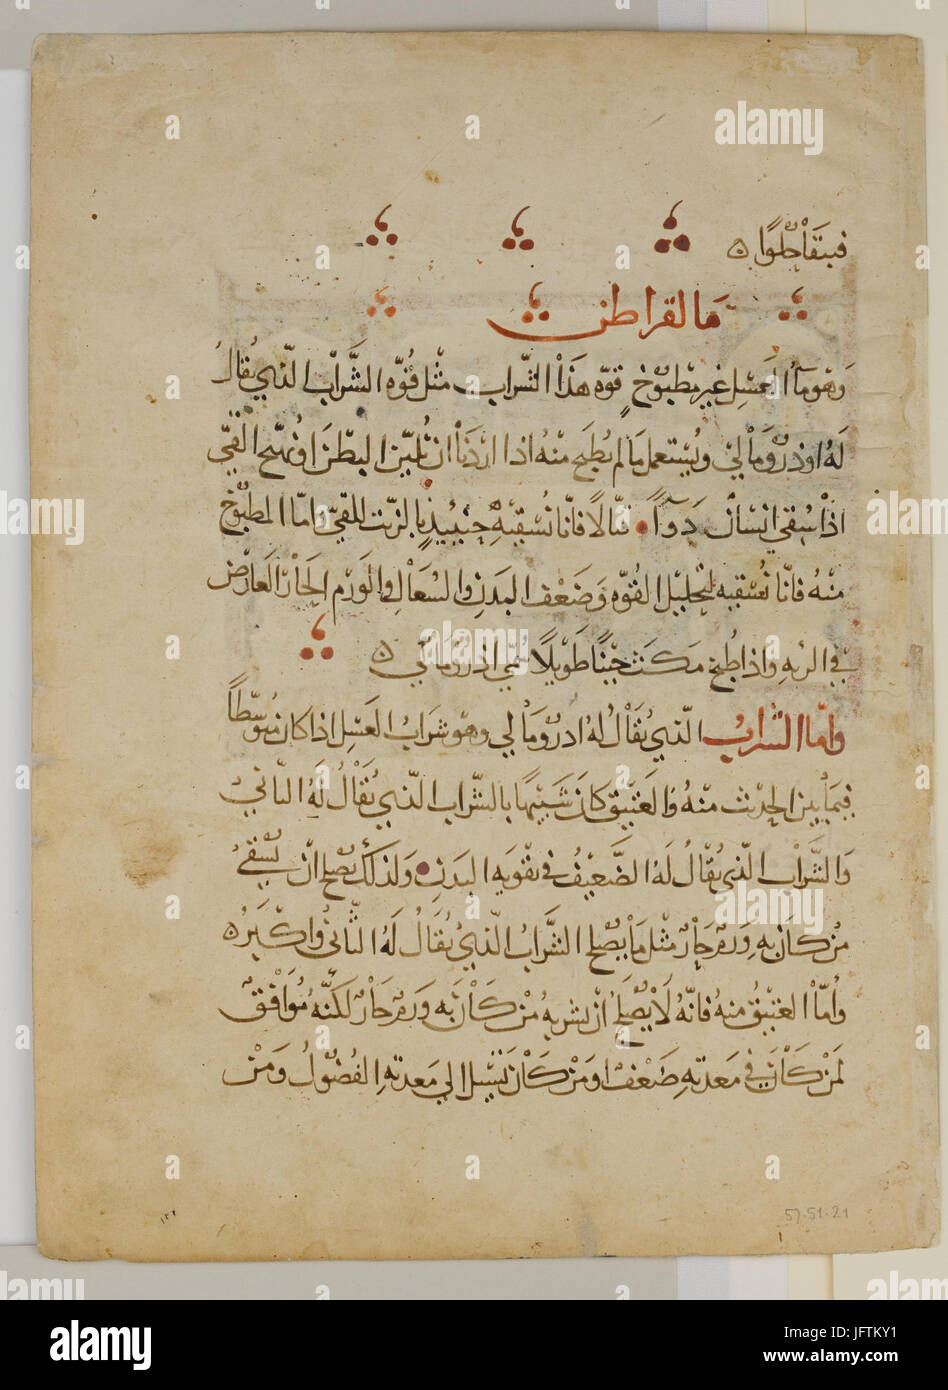 فيبقا حلوا ه
مالقراطن
وهو مآ العسل غير مطبوخ قوه هذا الشراب مثل قوه الشراب الذي يقال
له اوذرومالي ويستعمل ما لم يطبخ منه اذا اردنا ان نلين البطن او نهيج القي
اذا سقي انسان دوآ قتالا فانا نسقيه حينيذ بالزيت للقي واما المطبوخ
منه فانا نسقيه لتحليل القوه وضعف البدن والسعال والورم الحار العارض
في الريه واذا طبخ مكث حينا طويلا سمي اذرومالي ه
واما الشراب الذي يقال له ادرومالي وهو شراب العسل اذا كان متوسطا
فيما بين الحدث منه والعتيق كان شبيها بالشراب الذي يقال له الثاني
والشراب الذي يقال له الضعيف في تقويه البدن ولذلك يصلح ان يسقي
من كان به ورم حار مثل ما يصلح الشراب الذي يقال له الثاني واكثر ه
واما العتيق منه فانه لا يصلح ان يشربه من كان به ورم حار لكنه موافق
لمن كان في معدته ضعف او من كان تسيل الي معدته الفضول ومن
١٢٢
57.51.21
alamy
alamy stock photo
JFTKY1
www.alamy.com